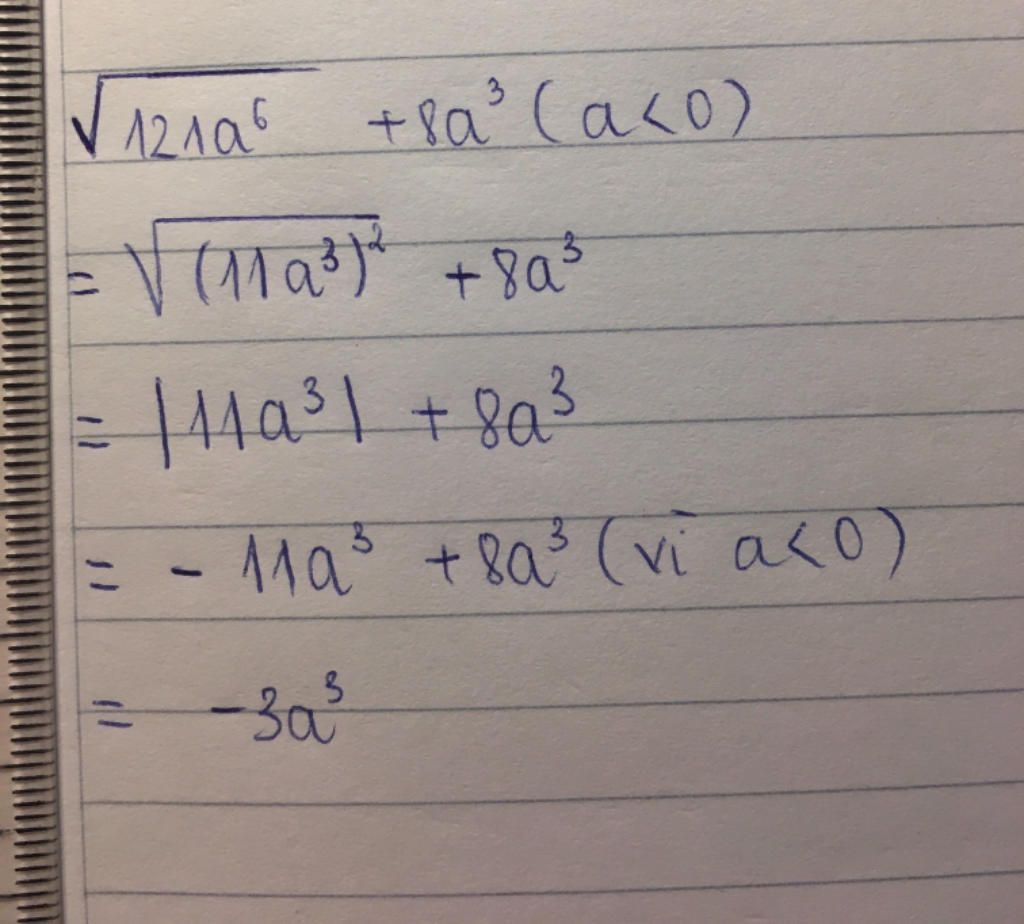 √121a⁶ + 8a³ (a<0)
= √(11a³)² + 8a³
= |11a³| + 8a³
= - 11a³ + 8a³ (vì a<0)
= -3a³